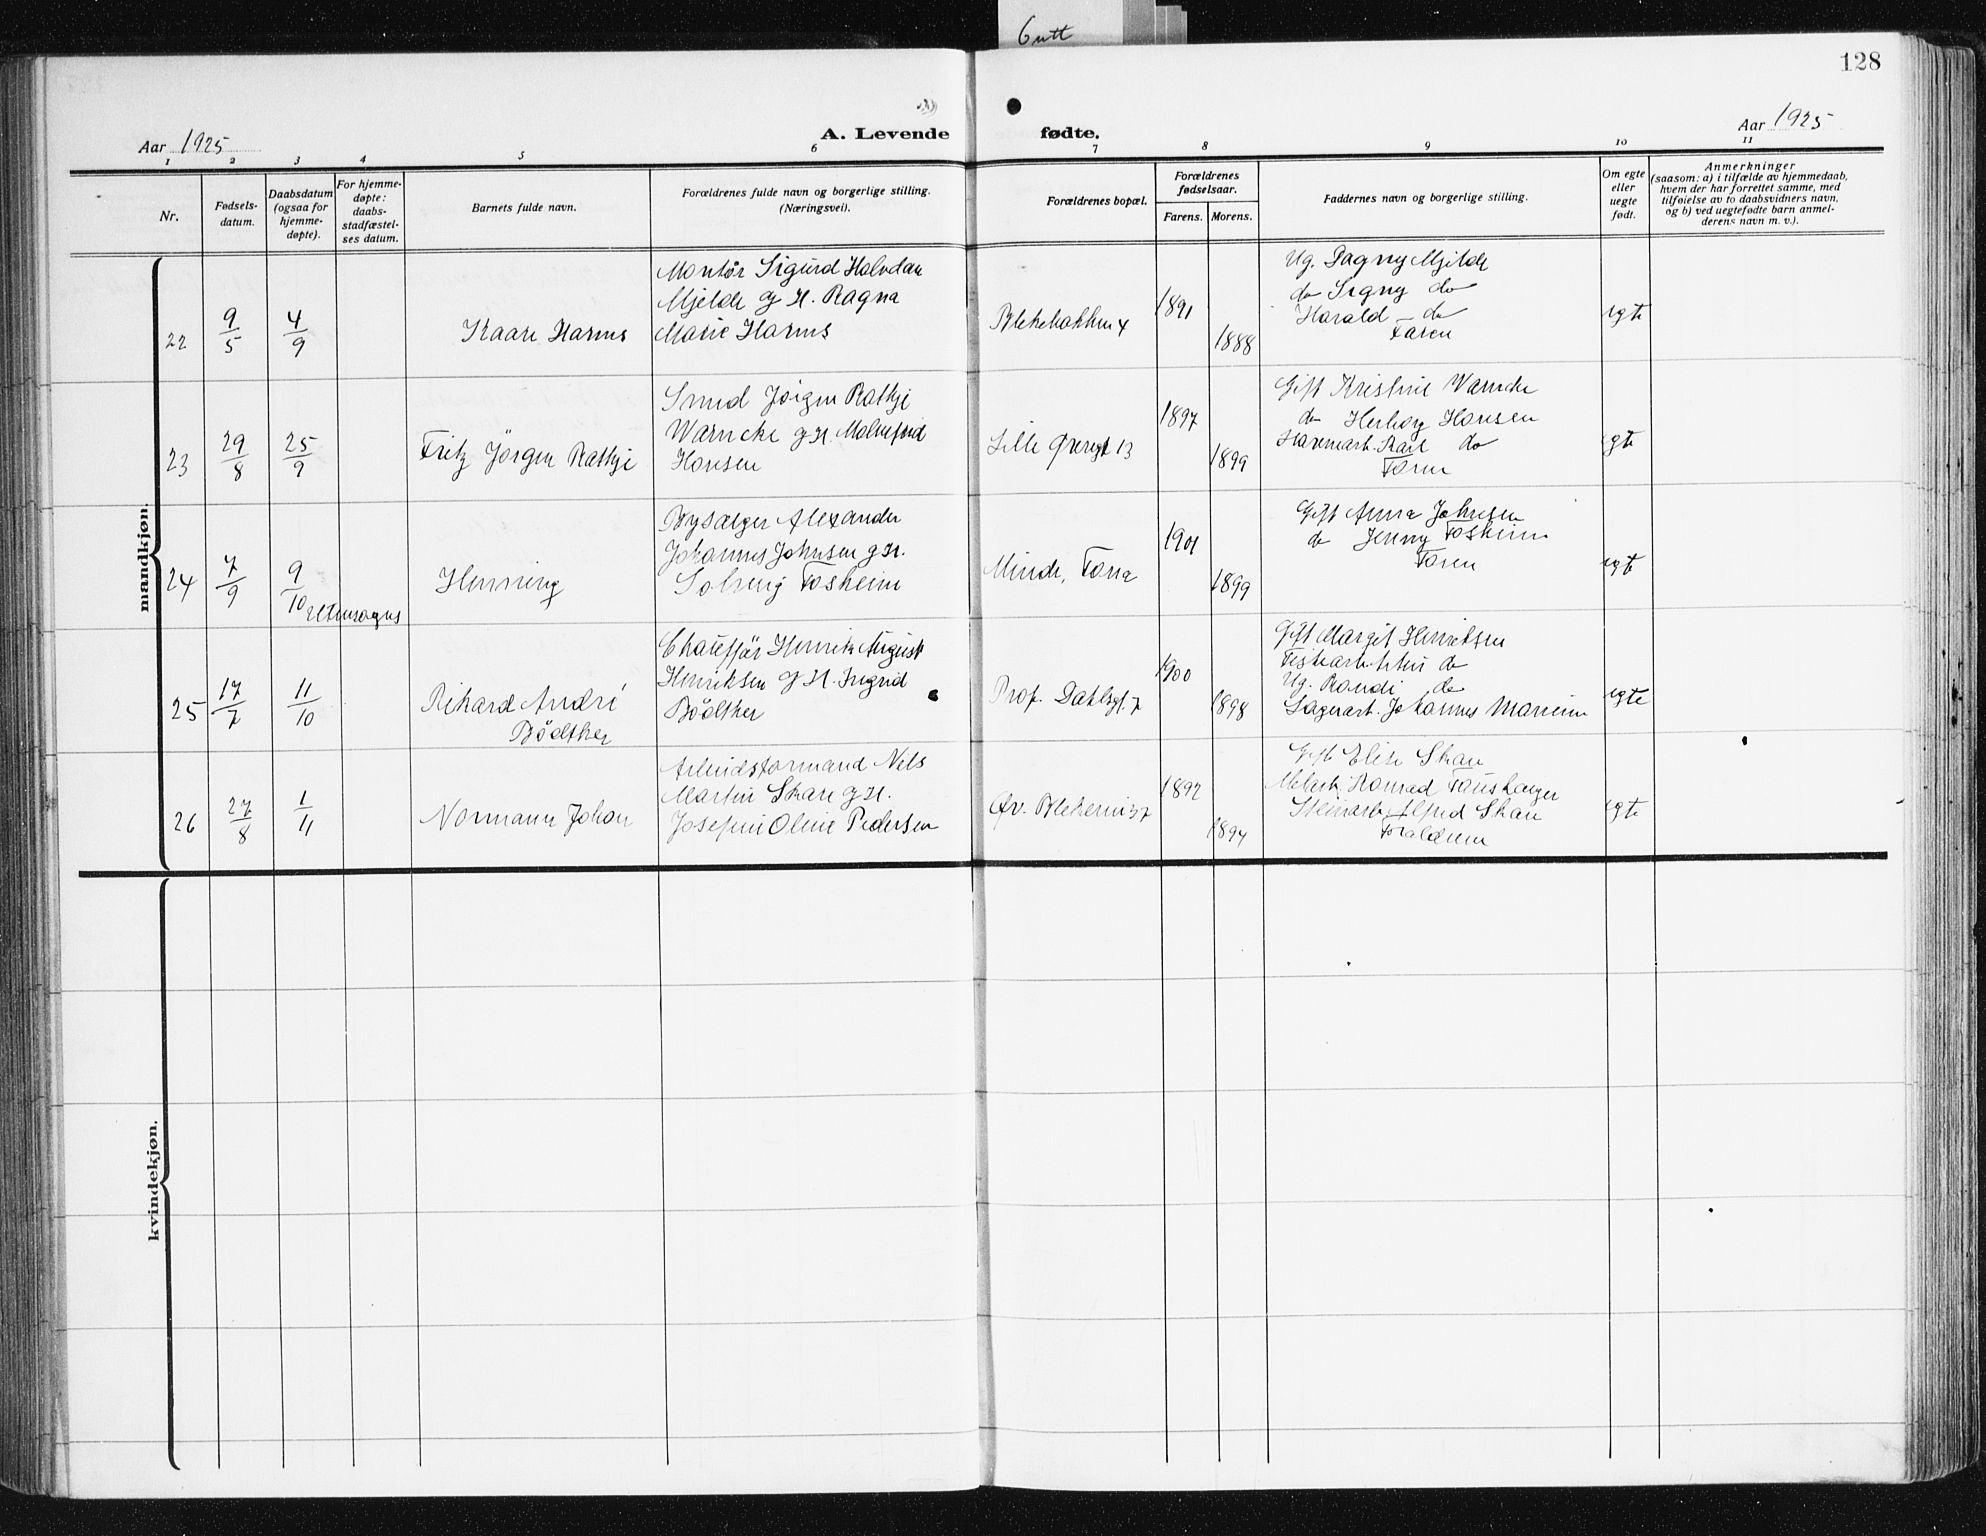 Gutt
128
Aar 1925
A. Levende fødte.
Aar 1925
1 2 3 4 5 6 7 8 9 10 11
Nr.
Fødsels-
datum.
Daabsdatum
(ogsaa for
hjemme-
døpte).
For hjemme-
døpte:
daabs-
stadfæstel-
ses datum.
Barnets fulde navn.
Forældrenes fulde navn og borgerlige stilling.
(Næringsvei).
Forældrenes bopæl.
Forældrenes
fødselsaar.
Farens. Morens.
Faddernes navn og borgerlige stilling.
Om egte
eller
uegte
født.
Anmerkninger
(saasom: a) i tilfælde av hjemmedaab,
hvem der har forrettet samme, med
tilføielse av to daabsvidners navn,
og b) ved uegtefødte barn anmel-
derens navn m. v.).
mandkjøn.
22
9/5
4/9
Kaare Harms
Montør Sigurd Halvdan
Mjelde og H. Ragna
Marie Harms
Blekebakken 4
1891
1888
Ug. Dagny Mjelde
do Signy do
Harald do
Faren
egte
23
29/8
25/9
Fritz Jörgen Rathje
Smed Jörgen Rathje
Warncke og H. Malmfrid
Hansen
Lille Øvregt 13
1897
1899
Gift Kristine Warncke
do Herborg Hansen
Havnearb. Karl do
Faren
egte
24
7/9
9/10
Henning
Bysælger Alexander
Johannes Johnsen og H.
Solveig Fosheim
Minde, Fana
1901
1899
Gift Anna Johnsen
do Jenny Fosheim
Faren
egte
25
17/7
11/10
Rikard André
Bödtker
Chauffør Henrik August
Henriksen og H. Ingrid
Bödtker
Prof. Dahlsgt. 7
1900
1898
Gift Margit Henriksen
Fiskearb. do
Ug. Randi do
Lagerarb. Johannes
egte
26
27/8
1/11
Normann Johan
Arbeidsformand Nils
Martin Skare og H.
Josefine Oline Pedersen
Øv. Blekevei 37
1892
1894
Gift Elise Skare
Konrad
Stenarb. Alfred Skare
Forældrene
egte
kvindekjøn.